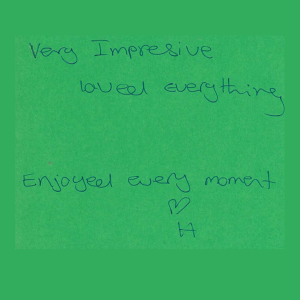 Very Impresive
loved everything
Enjoyed every moment
♡
H